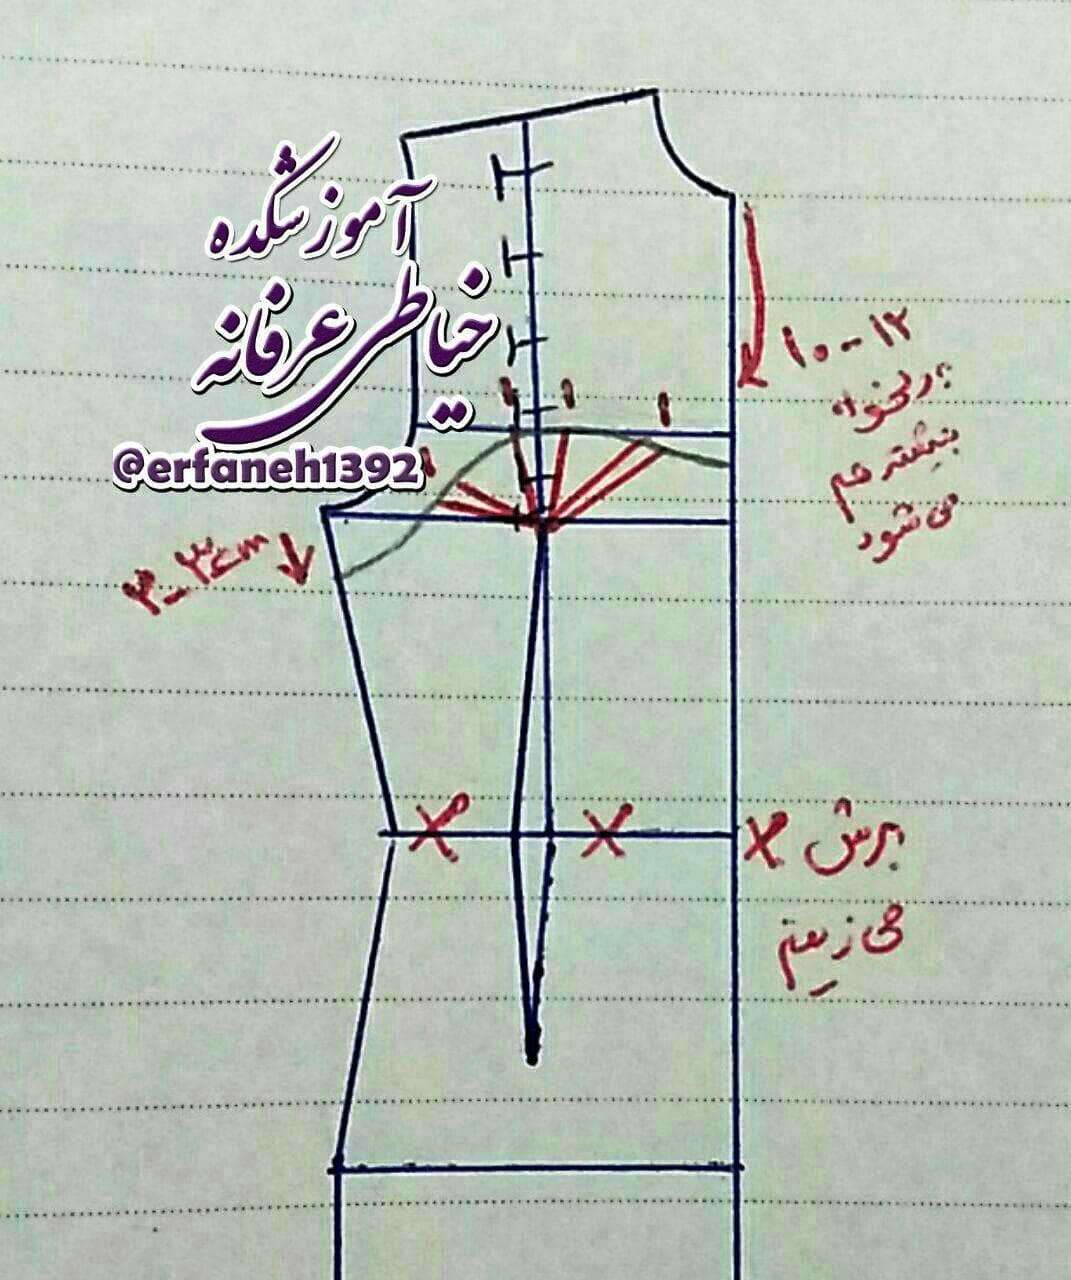 آموزشکده
خیاطی عرفانه
@erfaneh1392
۱۰-۱۲
بدلخواه
بیشتر هم
می شود
۲-۳cm
۱
۱
۱
۱
برش
می زنیم